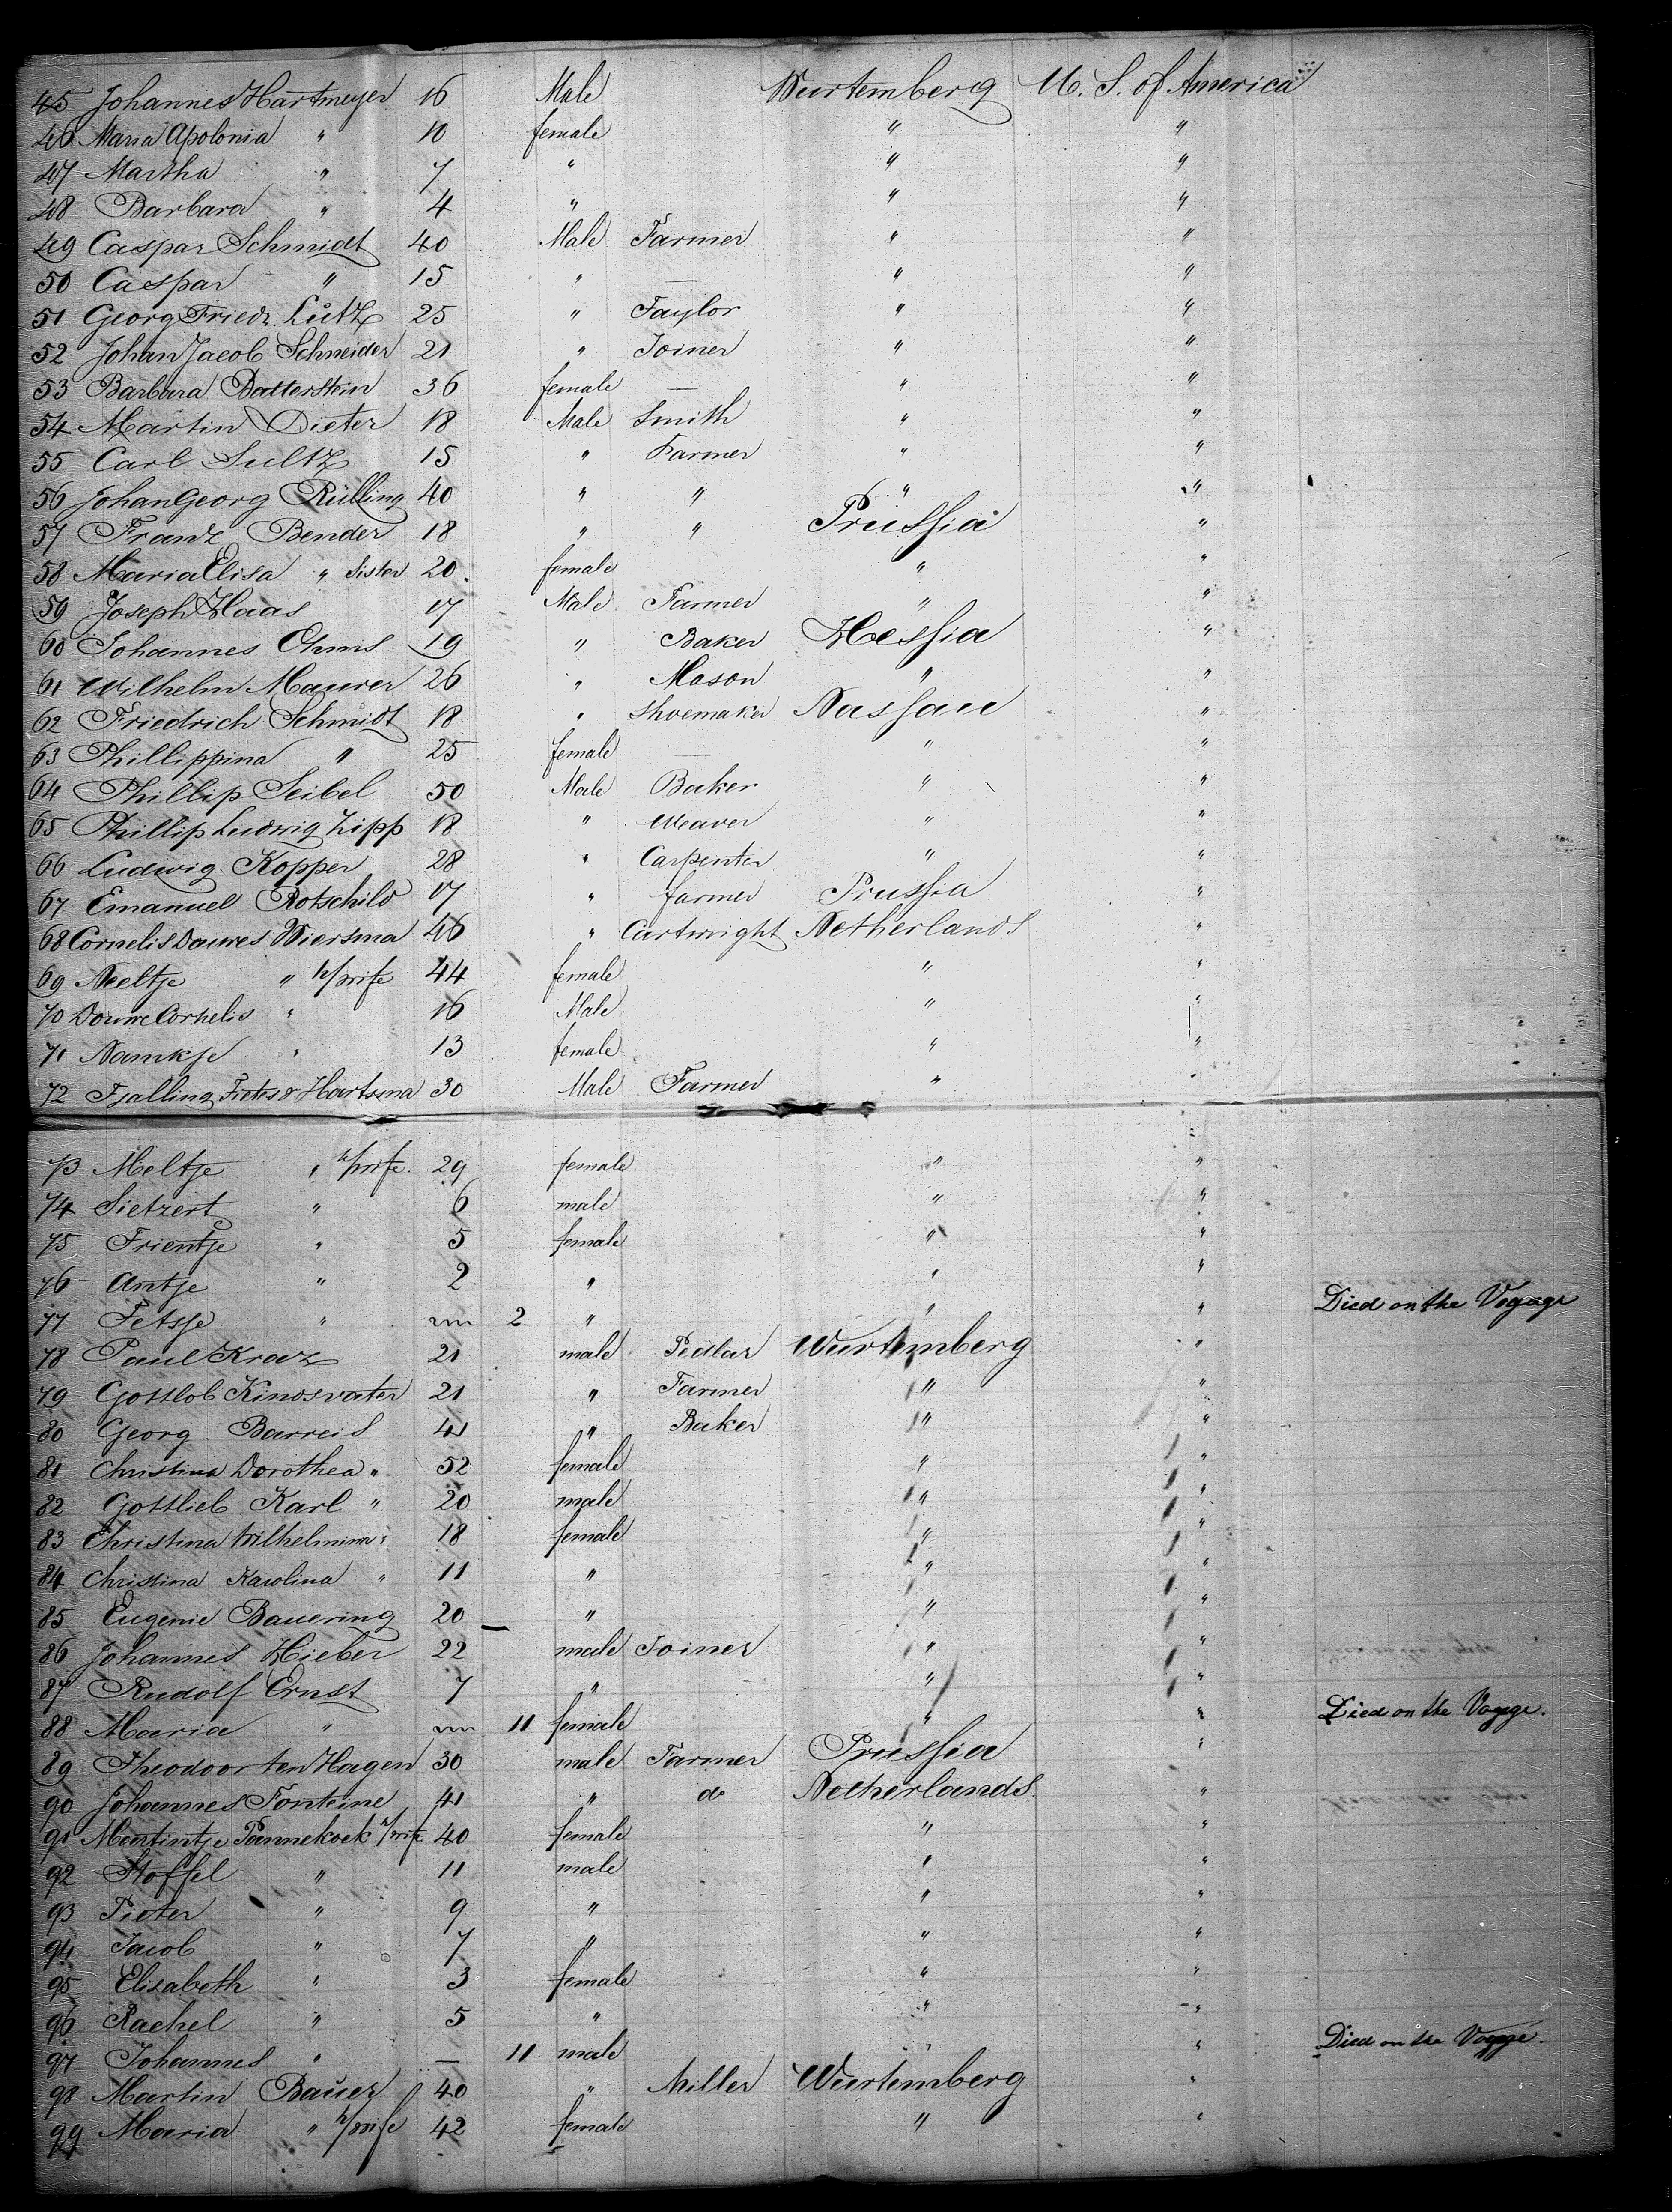 45 Johannes Hartmeyer 16 Male Wurtemberg U. S. of America
46 Maria Apolonia " 10 female " "
47 Martha " 7 " " "
48 Barbara " 4 " " "
49 Caspar Schmidt 40 Male Farmer " "
50 Caspar " 15 " — " "
51 Georg Friedr. Lutz 25 " Taylor " "
52 Johan Jacob Schneider 21 " Joiner " "
53 Barbara Batterstein 36 female — " "
54 Martin Dieter 18 Male Smith " "
55 Carl Sultz 15 " Farmer " "
56 Johan Georg Rülling 40 " " " "
57 Franz Bender 18 " " Prussia "
58 Maria Elisa " Sister 20 female " "
59 Joseph Haas 17 Male Farmer " "
60 Johannes Ohms 19 " Baker Hessia "
61 Wilhelm Maurer 26 " Mason " "
62 Friedrich Schmidt 18 " Shoemaker Nassau "
63 Phillippina " 25 female — " "
64 Phillip Seibel 50 Male Baker " "
65 Phillip Ludwig Lipp 18 " Weaver " "
66 Ludwig Kopper 28 " Carpenter " "
67 Emanuel Rotschild 17 " farmer Prussia "
68 Cornelis Douwes Wiersma 46 " Cartwright Netherlands "
69 Neeltje " h/wife 44 female " "
70 Douwe Cornelis " 16 Male " "
71 Namkje " 13 female " "
72 Tjalling Hartsma 30 Male Farmer " "
73 Meltje " h/wife. 29 female " "
74 Sietzert " 6 male " "
75 Trientje " 5 female " "
76 Antje " 2 " " "
77 Tetsje " 2 " " " Died on the Voyage
78 Paul Kraz 21 male Pedlar Wurtemberg "
79 Gottlob Kindsvater 21 " Farmer " "
80 Georg Barreis 41 " Baker " "
81 Christina Dorothea " 52 female " "
82 Gottlieb Karl " 20 male " "
83 Christina Wilhelmina " 18 female " "
84 Christina Karolina " 11 " " "
85 Eugenie Bauering 20 " " "
86 Johannes Hieber 22 male Joiner " "
87 Rudolf Ernst 7 " " "
88 Maria " 11 female " " Died on the Voyage.
89 Theodoor ten Hagen 30 male Farmer Prussia "
90 Johannes Fonteine 41 " do Netherlands "
91 Martintje Pannekoek h/wife 40 female " "
92 Stoffel " 11 male " "
93 Pieter " 9 " " "
94 Jacob " 7 " " "
95 Elisabeth " 3 female " "
96 Rachel " 5 " " "
97 Johannes " — 11 male " " Died on the Voyage.
98 Martin Bauer 40 " Miller Wurtemberg "
99 Maria " h/wife 42 female " "